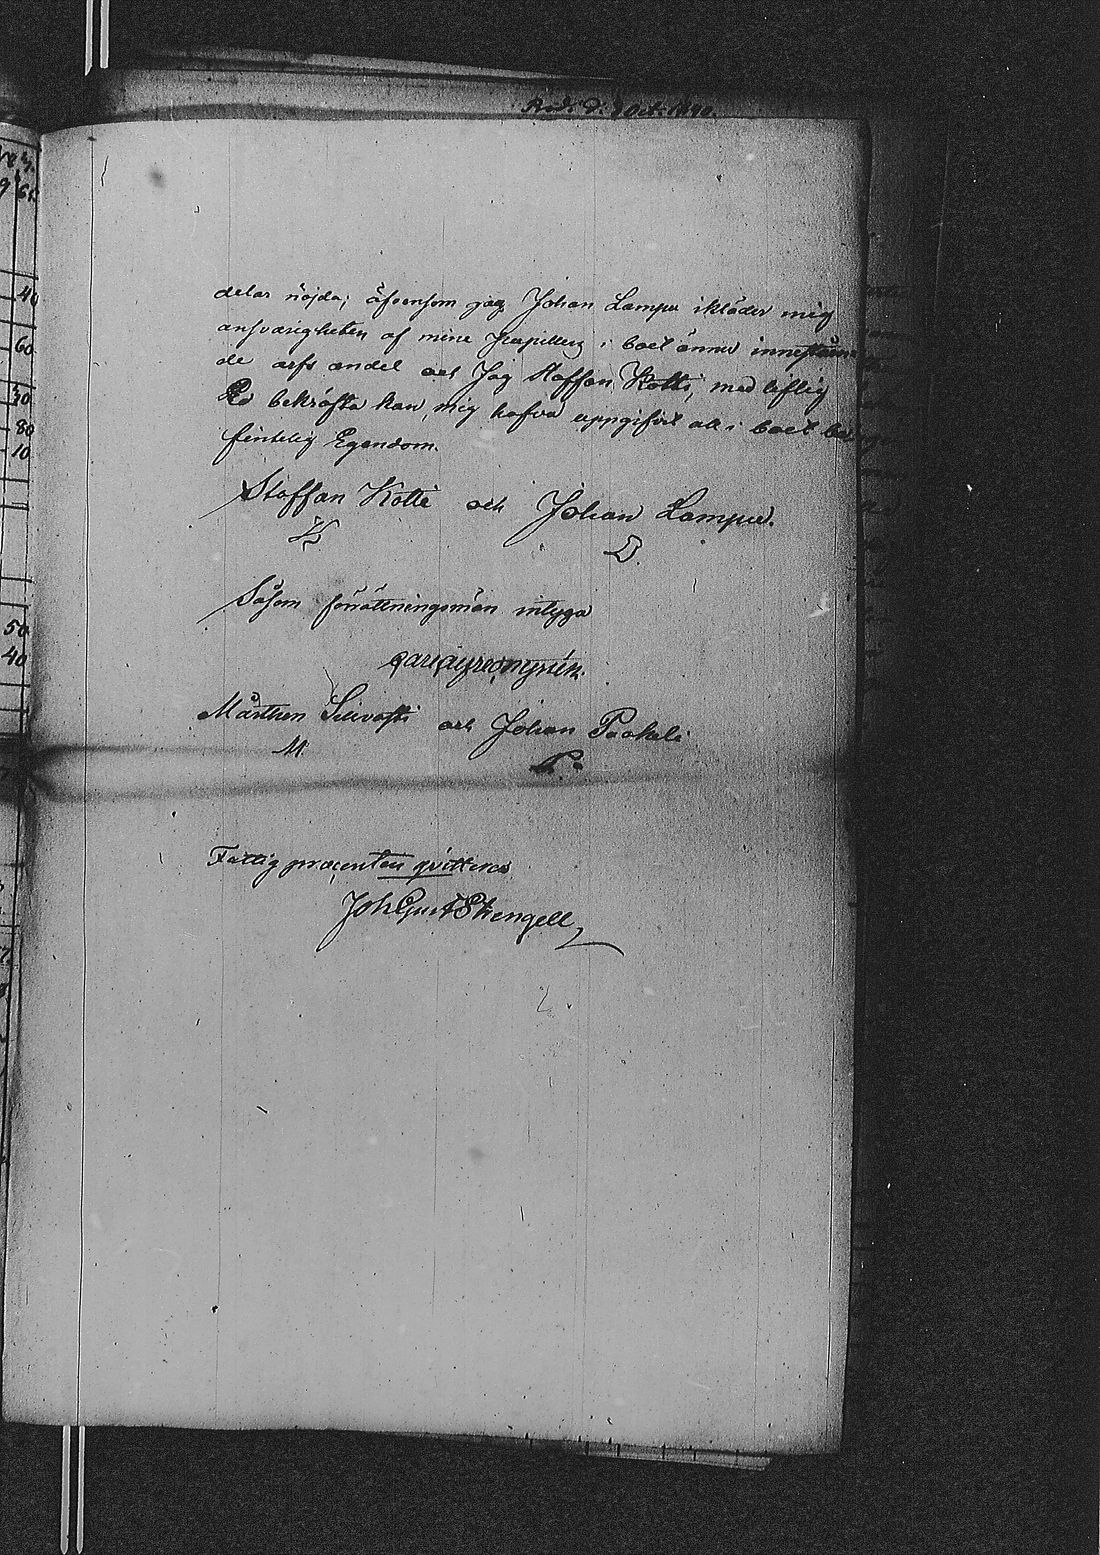 delar nöjda; äfvensom jag Johan Lampu ikläder mig
ansvarigheten af mine Pupillers i boet ännu inneståen-
de arfs andel och Jag Staffan Kotti, med liflig
Ed bekräfta kan, mig hafva uppgifvit all i boet be-
fintelig Egendom.
Staffan Kotti och Johan Lampu.
Såsom förrättningsmän intyga
Mårthen och Johan Paakeli
M P.
Fattig procenten qvitteras
Joh Gust Strengell
50
40
40
60
80
10